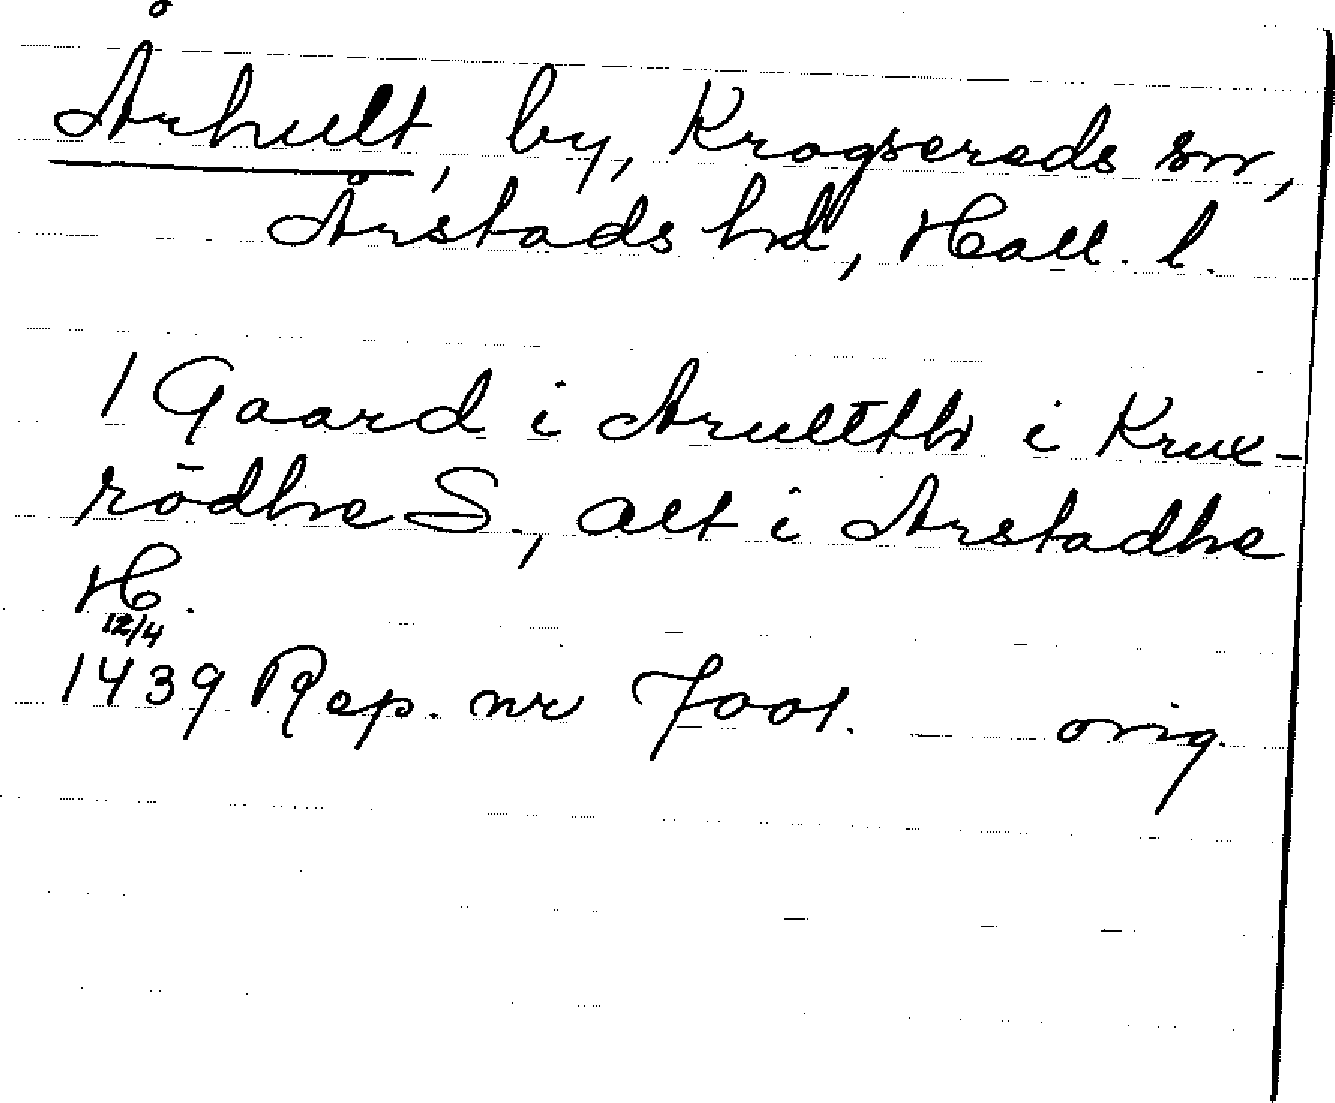 Århult, by, Krogsereds sn,
Årstads hd, Hall. l.
1 Gaard i Arulltth i Krux-
rödhe S., alt i Arstadhe
H.
12/4
1439 Rep. nr 7001. orig.